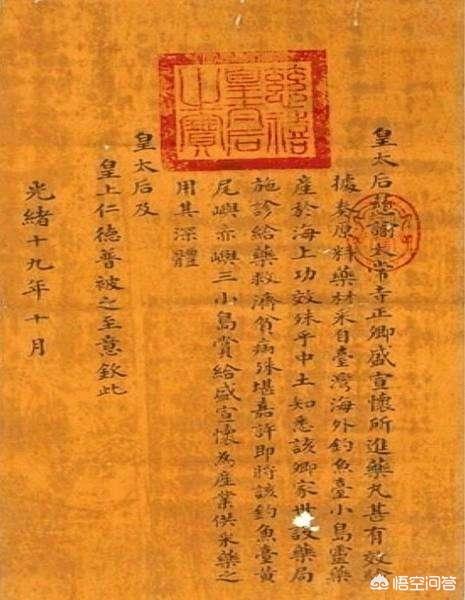 慈禧皇太后之寶
皇太后慈諭太常寺正卿盛宣懷所進藥丸甚有效
據奏原料藥材采自臺灣海外釣魚臺小島靈藥
產於海上功效殊乎中土知悉該卿家世設藥局
施診給藥救濟貧病殊堪嘉許即將該釣魚臺黃
尾嶼赤嶼三小島賞給盛宣懷為產業供采藥之
用其深體
皇太后及
皇上仁德普被之至意欽此
光緒十九年十月
悟空问答